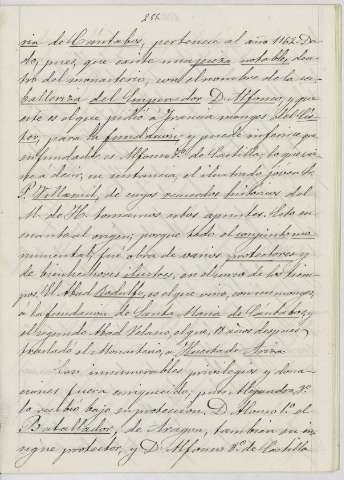 256
ria de Cántabos, pertenece al año 1162. Da-
to, pues, que existe una pieza notable, den-
tro del monasterio, con el nombre de la ca-
balleriza del Emperador D. Alfonso, y que
este es el que pidió á Francia monges del Cis-
ter, para la fundacion; puede inferirse que
su fundador es Alfonso 7.º de Castilla; lo que vie-
ne á decir, en sustancia, el ilustrado joven
P. Villamil, de cuyas
M. de H. tomamos estos apuntes. Esto en
cuanto al origen; porque todo el conjunto mo-
numental, fué obra de varios protectores y
de bienhechores ilustres, en el curso de los tiem-
pos. El Abad Rodulfo, es el que vino, con sus monges,
á la fundacion de Santa Maria de Cántabos; y
el segundo Abad Blasco, el que, 18 años despues,
trasladó el Monasterio, á Huerta de Ariza.
Con innumerables privilegios y dona-
ciones fuera enriquecido; pues Alejandro 3.º
lo recibió bajo su proteccion. D. Alonso 1.º el
Batallador, de Aragon, tambien su in-
signe protector, y D. Alfonso 8.º de Castilla